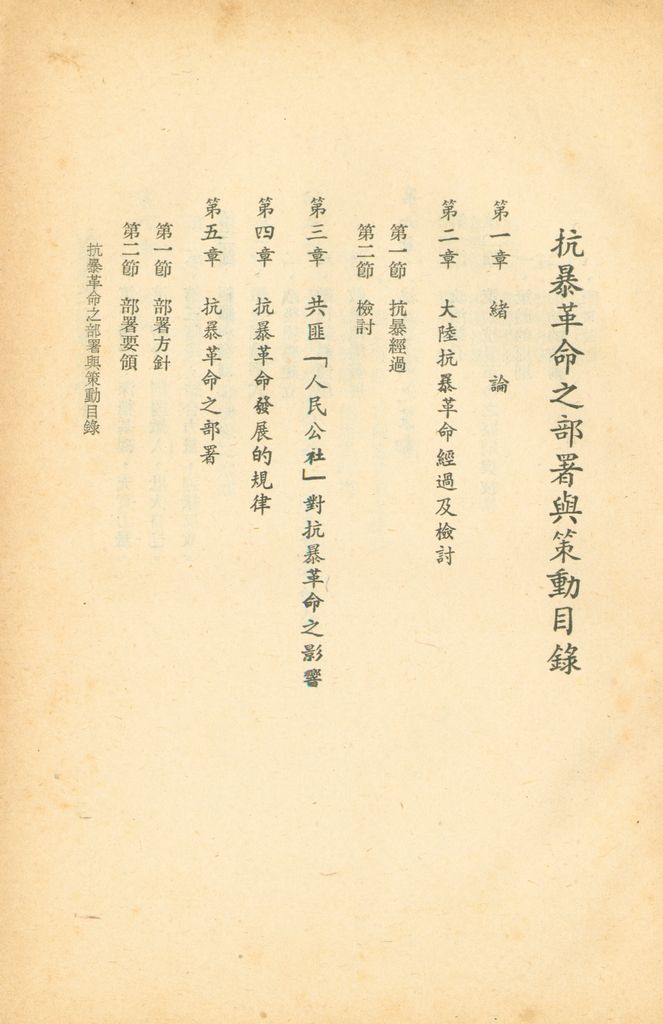 抗暴革命之部署與策動目錄
第一章 緒論
第二章 大陸抗暴革命經過及檢討
第一節 抗暴經過
第二節 檢討
第三章 共匪「人民公社」對抗暴革命之影響
第四章 抗暴革命發展的規律
第五章 抗暴革命之部署
第一節 部署方針
第二節 部署要領
抗暴革命之部署與策動目錄